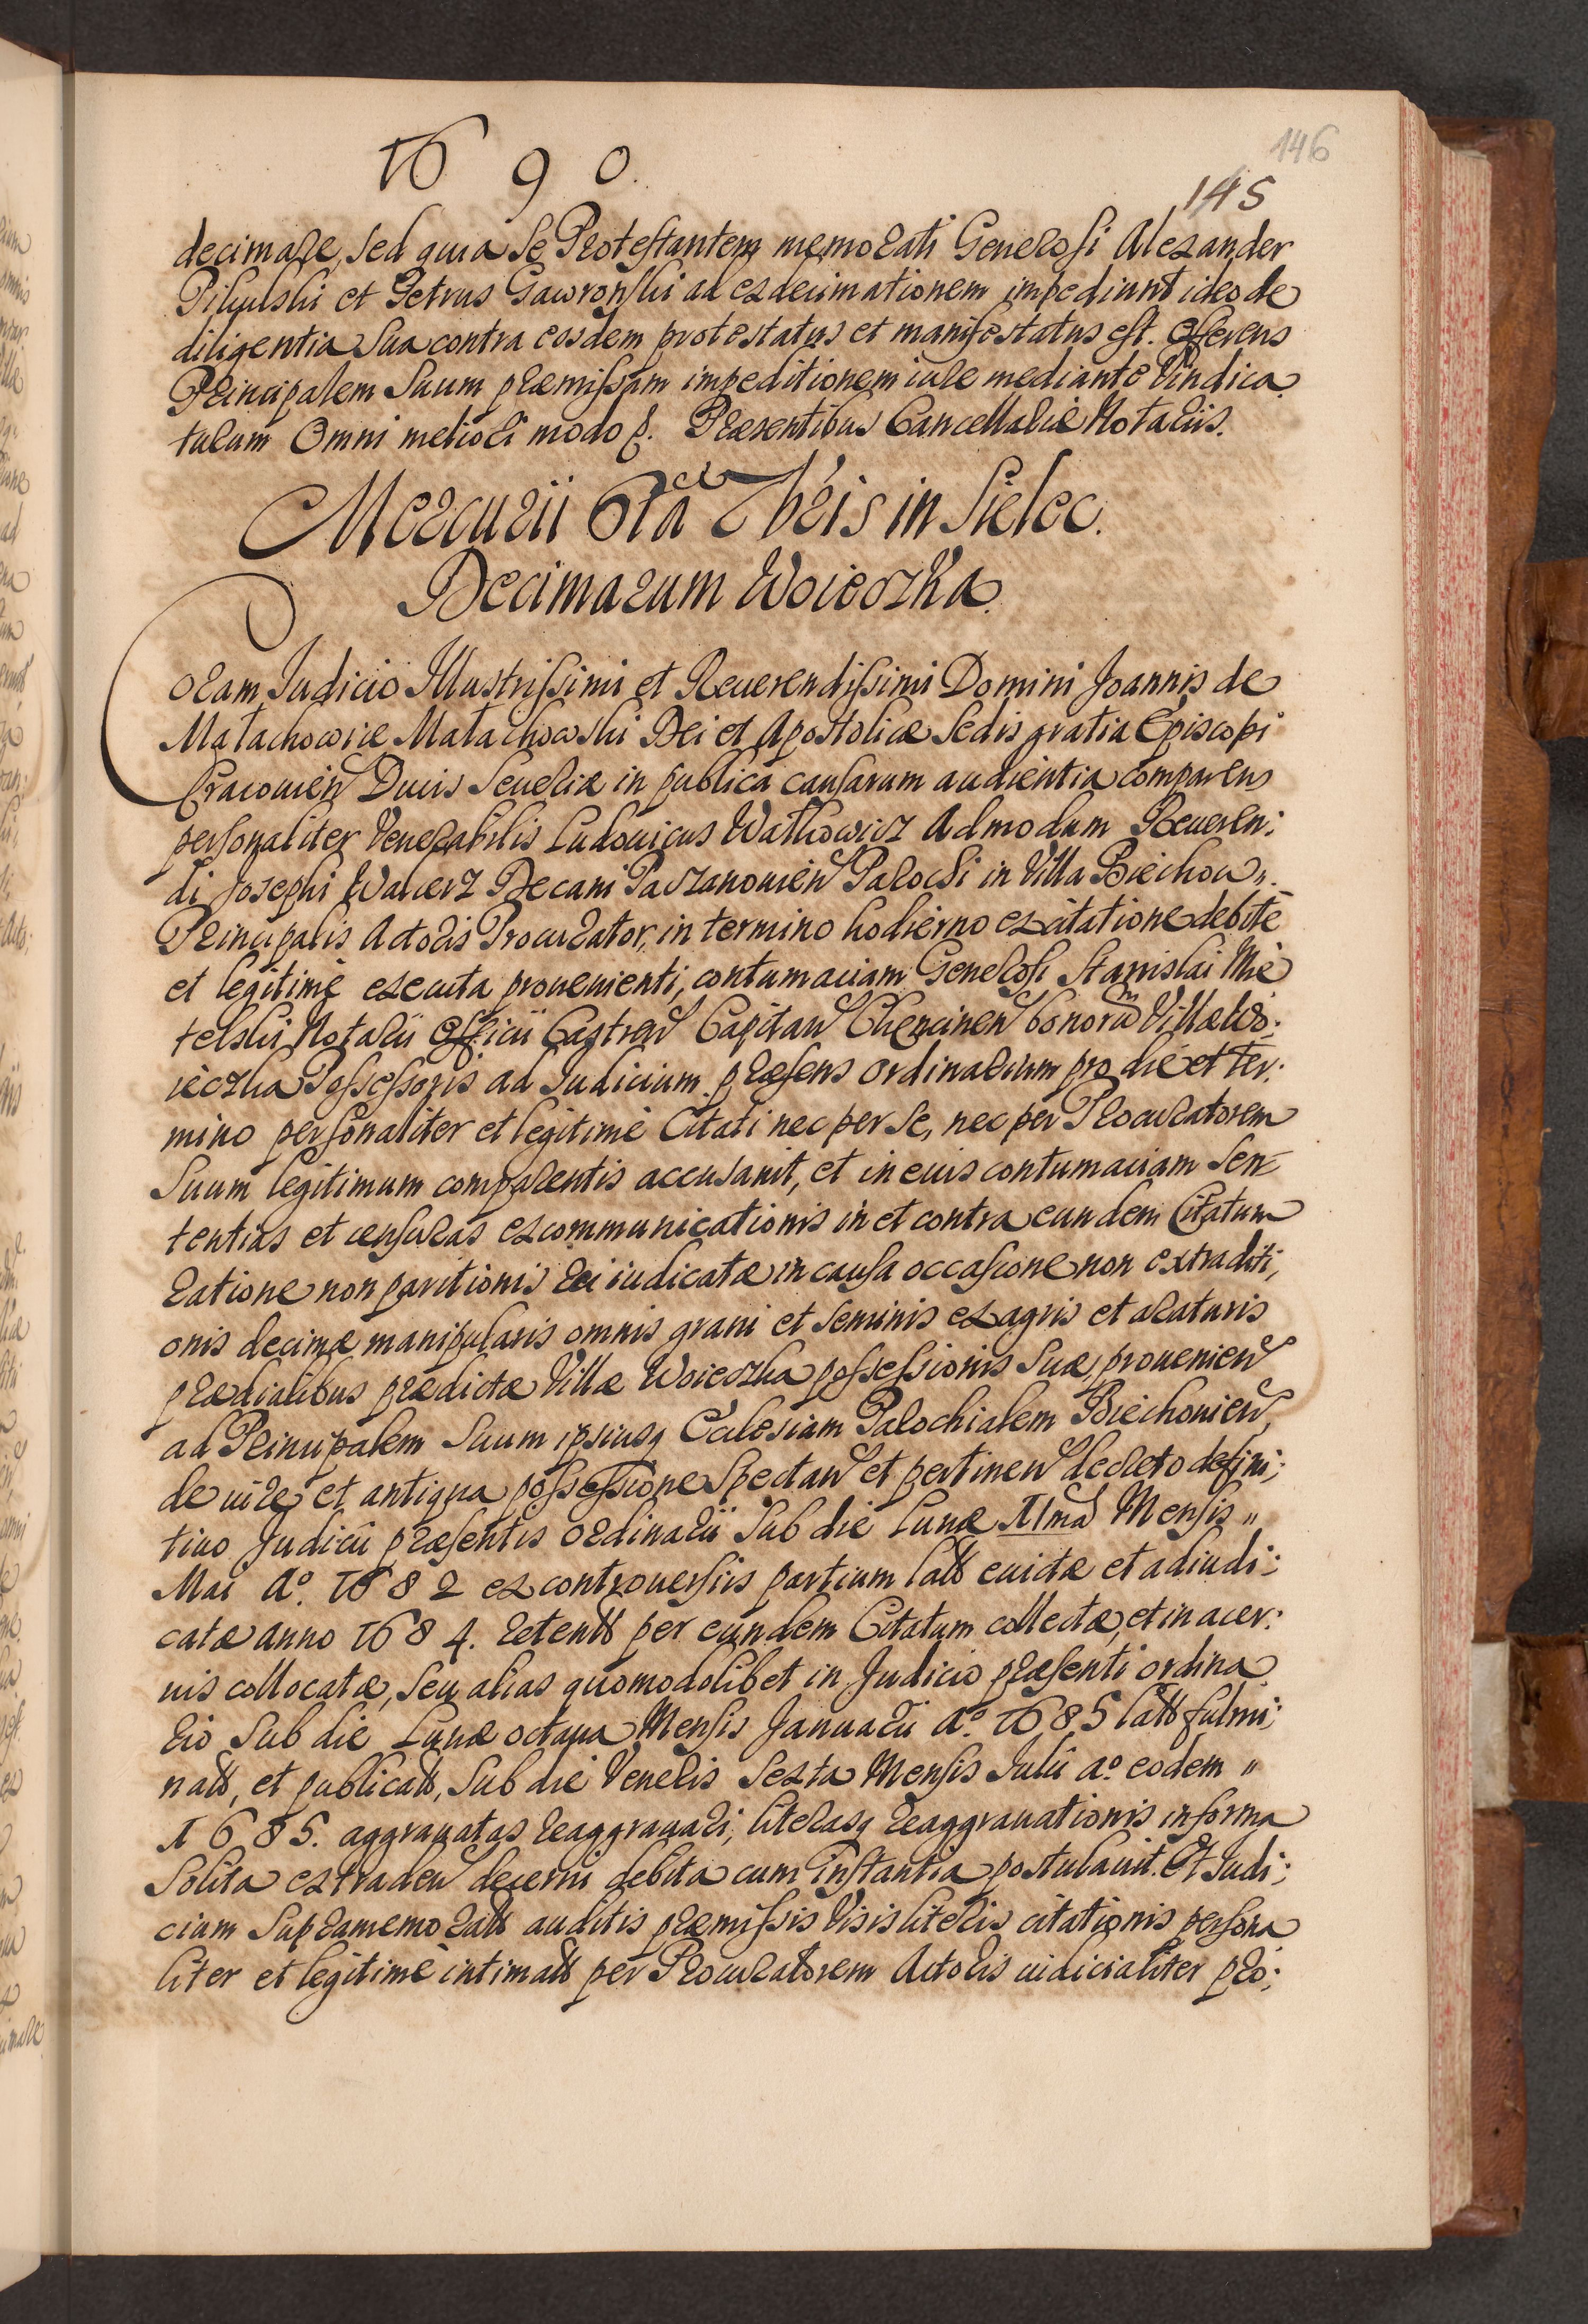 1690.
146
145
decimare, sed quia se Protestantem memorati Generosi Alexander
Pilgulski et Petrus Gawronski ad exdecimationem impediunt ideo de
diligentia sua contra eosdem protestatus et manifestatus est. Offerens
Principalem Suum præmissam impeditionem iure mediante Vindica
turum Omni meliori modo p. Præsentibus Cancellariæ Notariis.
Mercurii 6ta 7bris in Sielec.
Decimarum Woieczka.
Coram Judicio Illustrissimi et Reuerendissimi Domini Joannis de
Małachowice Małachowski Dei et Apostolicæ Sedis gratia Episcopi
Cracouien Ducis Seueriæ in publica causarum audientia comparens
personaliter Venerabilis Ludouicus Wałkowicz Admodum Reueren:
di Josephi Walierz Decani Paczanouien Parochi in Villa Biechow „
Principalis Actoris Procurator, in termino hodierno ex citatione debite
et legitimè executa prouenienti, contumaciam Generosi Stanislai Mie
telski Notarii Officii Castren Capitan Chencinen bonorũ Villæ Wo:
ieczka Possessoris ad Judicium præsens ordinarium pro die et ter:
mino personaliter et legitimè Citati nec per se, nec per Procuratorem
Suum legitimum comparentis accusauit, et in eius contumaciam Sen
tentias et censuras excommunicationis in et contra eundem Citatum
ratione non paritionis rei iudicatæ in causa occasione non extraditi,
onis decimæ manipularis omnis grani et seminis ex agris et araturis
prædialibus prædictæ Villæ Woieczka possessionis Suæ, prouenien
ad Principalem Suum ipsiusq Ecclesiam Parochialem Biechouien,
de iure et antiqua possessione Spectan et pertinen decreto defini;
tiuo Judicii præsentis ordinarii Sub die Lunæ 11ma Mensis „
Mai Aº. 1682 ex controuersiis partium latt euictæ et adiudi:
catæ anno 1684. retentt per eundem Citatum collectæ, et in acer:
uis collocatæ, seu alias quomodolibet in Judicio præsenti ordina
rio Sub die Lunæ octaua Mensis Januarii Aº. 1685 latt fulmi;
natt, et publicatt, Sub die Veneris Sexta Mensis Julii aº. eodem „
1685. aggrauatas reaggrauari, literasq reaggrauationis in forma
Solita extraden decerni debita cum instantia postulauit. Et Judi;
cium Supramemoratt auditis præmissis Visis literis citationis persona
liter et legitimè intimatt per Procuratorem Actoris iudicialiter pro;